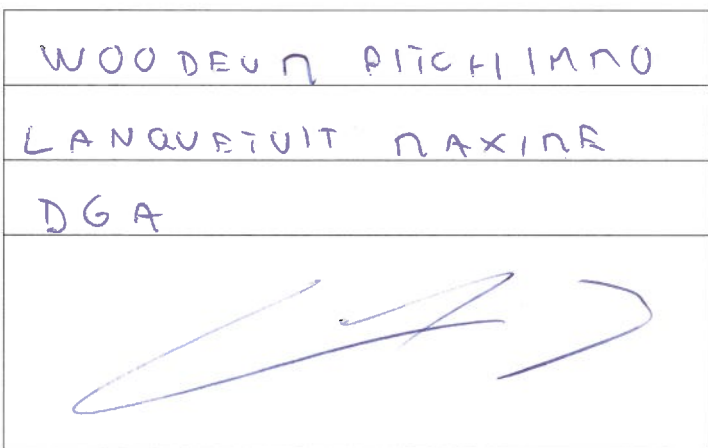 WOODEUM PITCHIMMO
LANQUETUIT MAXIME
DGA